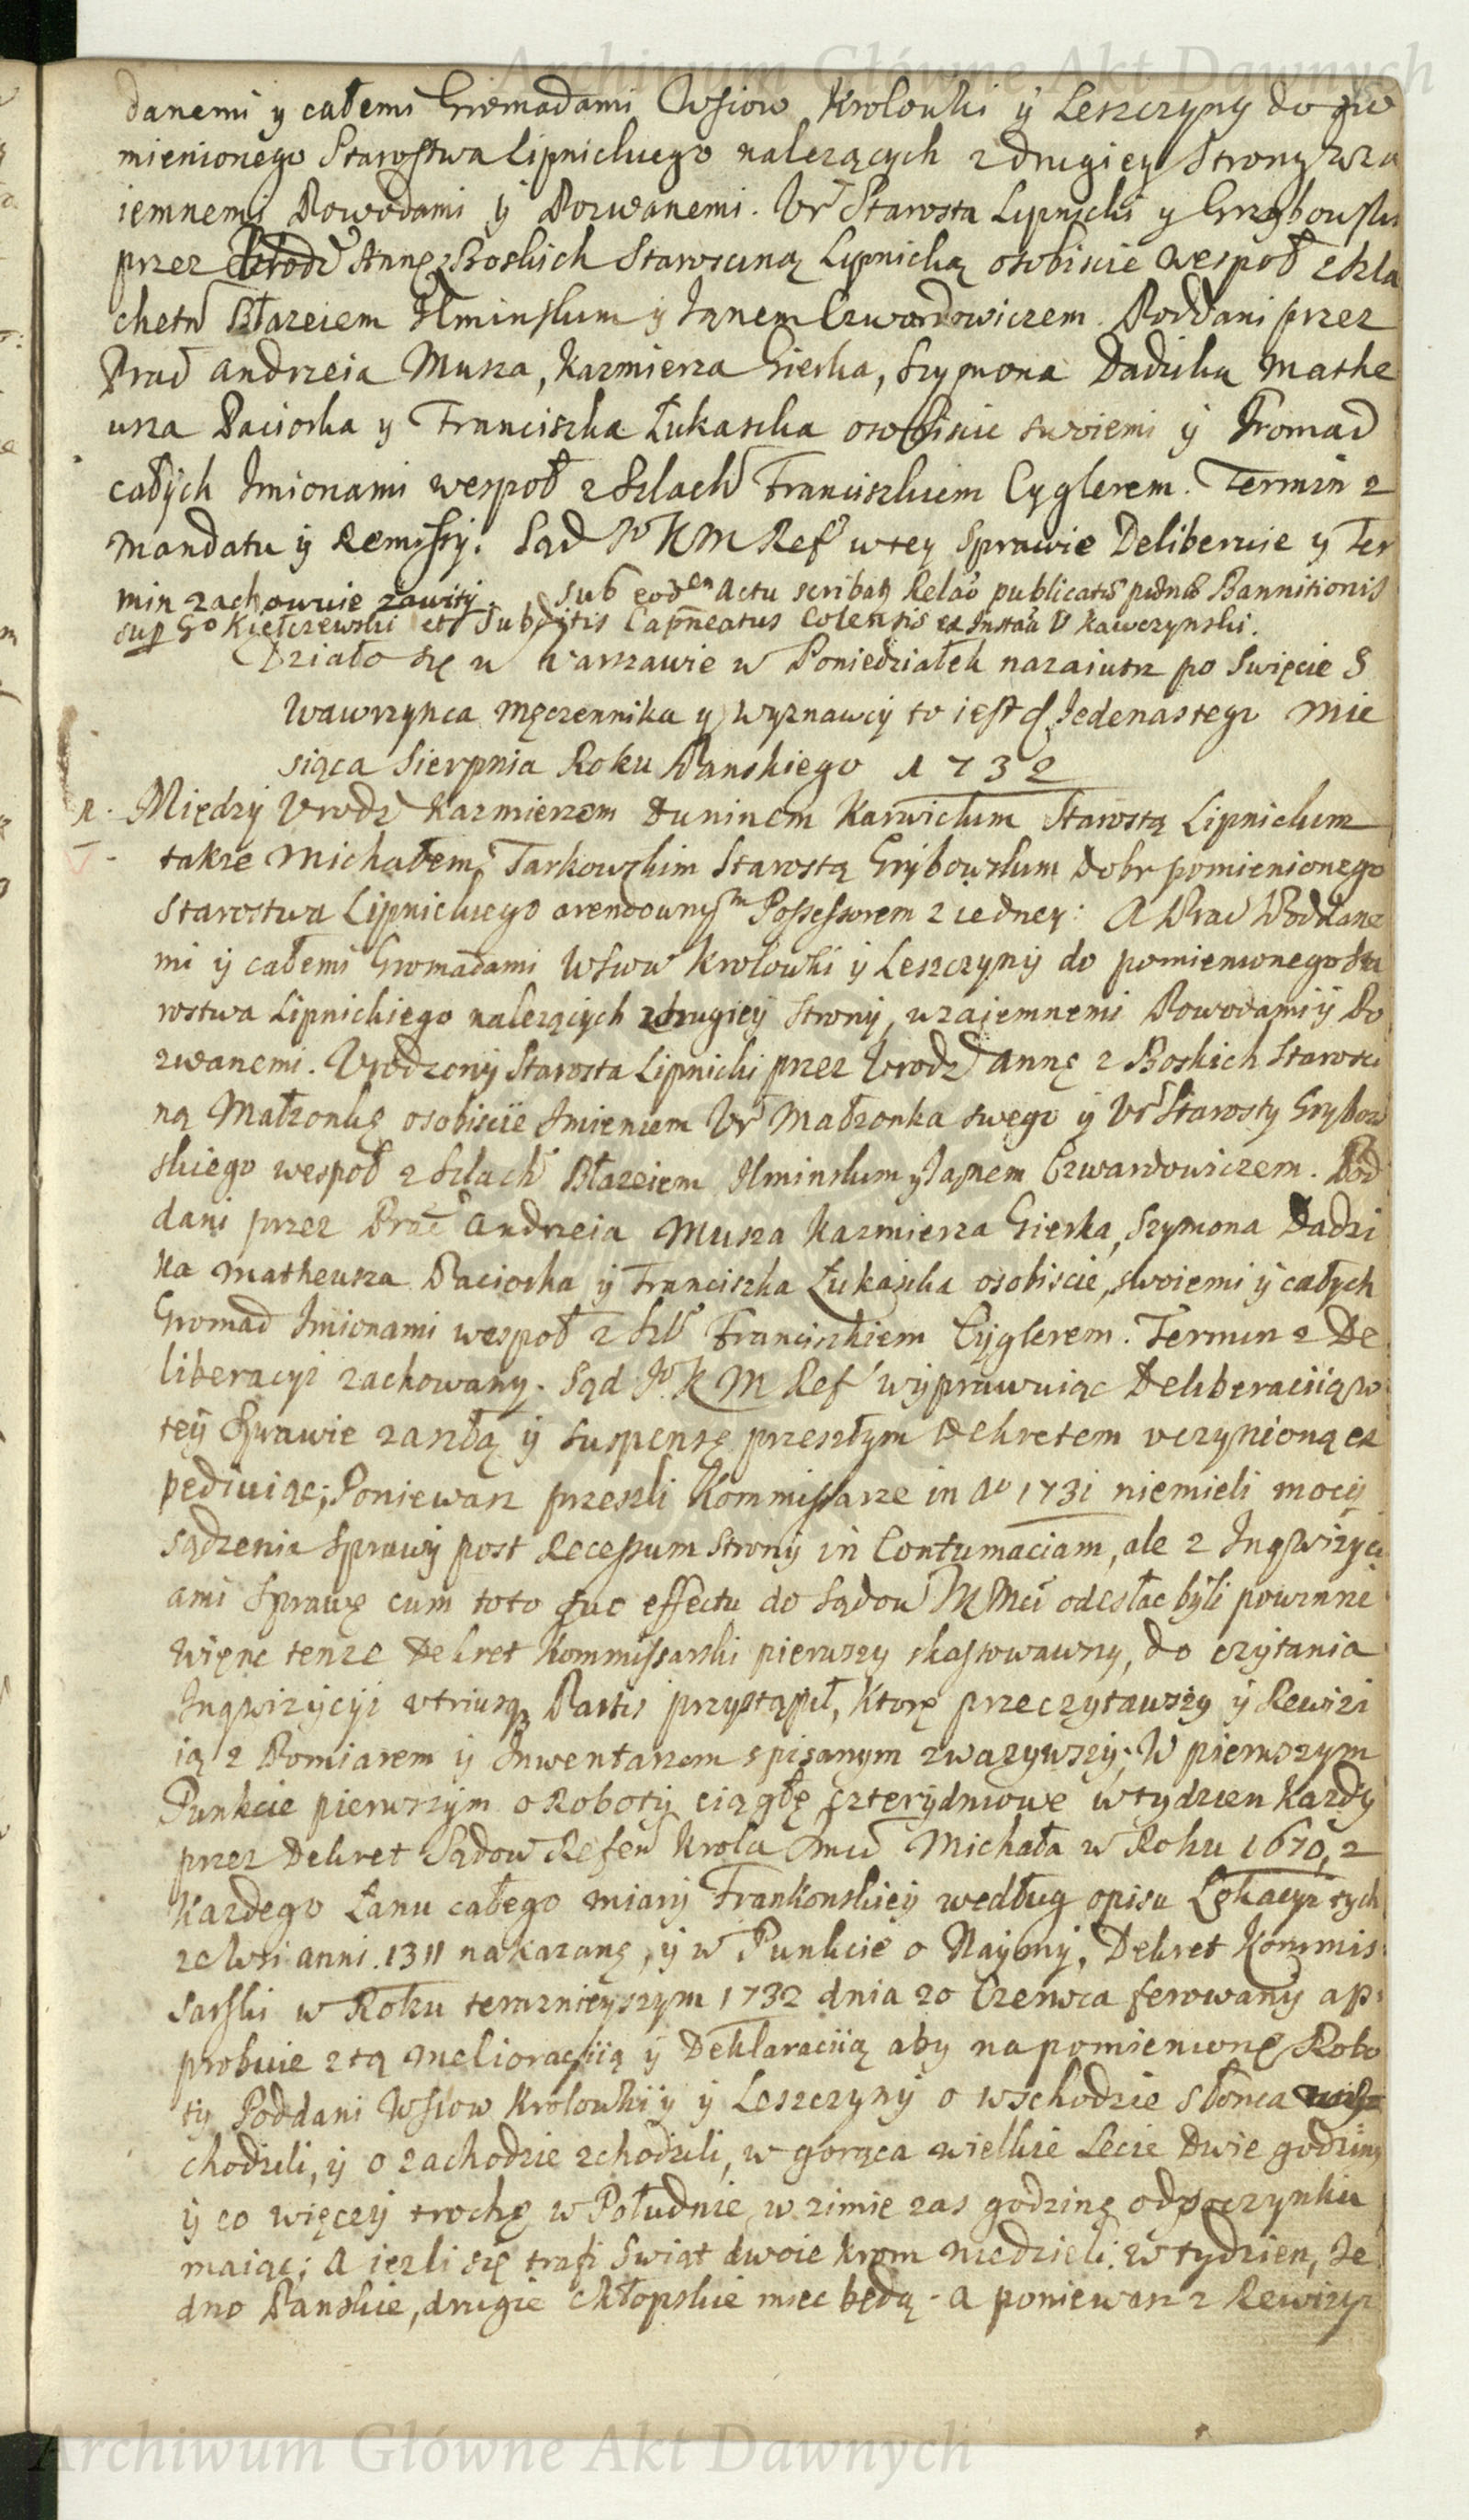 Archiwum Główne Akt Dawnych
danemi y całemi Gromadami Wsiow Krolowki y Leszczyny do po
mienionego Starostwa Lipnickiego nalezących z drugiey Strony wza
iemnemi Powodami y Pozwanemi. Ur Starosta Lipnicki y Grzybowski
przez Urodz Annę z Boskich Starosciną Lipnicką osobiscie wespoł z Szla
chetn Błazeiem Ilminskim y Janem Czwardowiczem. Poddani przez
Prac Andrzeia Musza, Kazmierza Gierka, Szymona Dadzika Mathe
usza Paciorka y Franciszka Łukaszka osobiscie swoiemi y Gromad
całych Imionami wespoł z Szlach Franciszkiem Cyglerem. Termin z
Mandatu y Remissy. Sąd J K M Ref w tey Sprawie Deliberuie y Ter
min zachowuie zawity. Sub eod Actu scribat Relao publicatis Bannitionis
sup Go Kiełczewski et Subditis Capneatus Colensis ex Insta V Kawczynski.
Działo się w Warszawie w Poniedziałek nazaiutrz po Swięcie S
Wawrzynca Męczennika y Wyznawcy to iest d Jedenastego Mie
siąca Sierpnia Roku Panskiego 1732
1. Między Urodz Kazmierzem Duninem Karwickim Starostą Lipnickim
takze Michałem Tarkowskim Starostą Grybowskim Dobr pomienionego
Starostwa Lipnickiego arendownym Possessorem z iedney: A Prac Poddane
mi y całemi Gromadami Wsiow Krolowki y Leszczyny do pomienionego Sta
rostwa Lipnickiego nalezących z drugiey Strony, wzaiemnemi Powodami y Po
zwanemi. Urodzony Starosta Lipnicki przez Urodz Annę z Boskich Starosci
ną Małzonkę osobiscie Imieniem Ur Małzonka swego y Ur Starosty Grybow
skiego wespoł z Szlach Błazeiem Ilminskim y Janem Czwardowiczem. Pod
dani przez Prac Andrzeia Musza Kazmierza Gierka, Szymona Dadzi
ka Matheusza Paciorka y Franciszka Łukaszka osobiscie, swoiemi y całych
Gromad Imionami wespoł z Szl Franciszkiem Cyglerem. Termin z De
liberacyi zachowany. Sąd J K M Ref wyprawuiąc Deliberaciią w
tey Sprawie zaszłą y suspensę przeszłym Dekretem uczynioną ex
pediuiąc; Poniewasz przeszli Kommissarze in Ao 1731 niemieli mocy
sądzenia Sprawy post Recessum Strony in Contumaciam, ale z Inqwizyci
ami Sprawę cum toto suo effectu do Sądow JKMci odesłac byli powinni
Więnc tenze Dekret Kommissarski pierwszy skassowawszy, do czytania
Inqwizycyi utriusq Partis przystąpił, Ktorę przeczytawszy y Rewizi
ią z Pomiarem y Inwentarzem spisanym zwazywszy; W pierwszym
Punkcie pierwszym o Roboty ciągłę czterydniowe w tydzien kazdy
przez Dekret Sądow Referen Krola Jmci Michała w Roku 1670, z
Kazdego Łanu całego miary Frankonskiey według opisu Lokacyi tych
ze Wsi anni. 1311 nakazanę, y w Punkcie o Naymy, Dekret Kommis
sarski w Roku teraznieyszym 1732 dnia 20 Czerwca ferowany ap
probuie z tą Melioraciią y Deklaraciią aby na pomienionę Robo
ty Poddani Wsiow Krolowkii y Leszczyny o wschodzie Słonca
chodzili, y o zachodzie zchodzili, w gorąca wielkie Lecie Dwie godziny
y co więcey trochę w Południe, w zimie zas godzinę odpoczynku
maiąc; A iezli się trafi Swiąt dwoie krom niedzieli w tydzien, Je
dno Panskie, drugie Chłopskie miec będą. A poniewasz z Rewizyi
Archiwum Główne Akt Dawnych